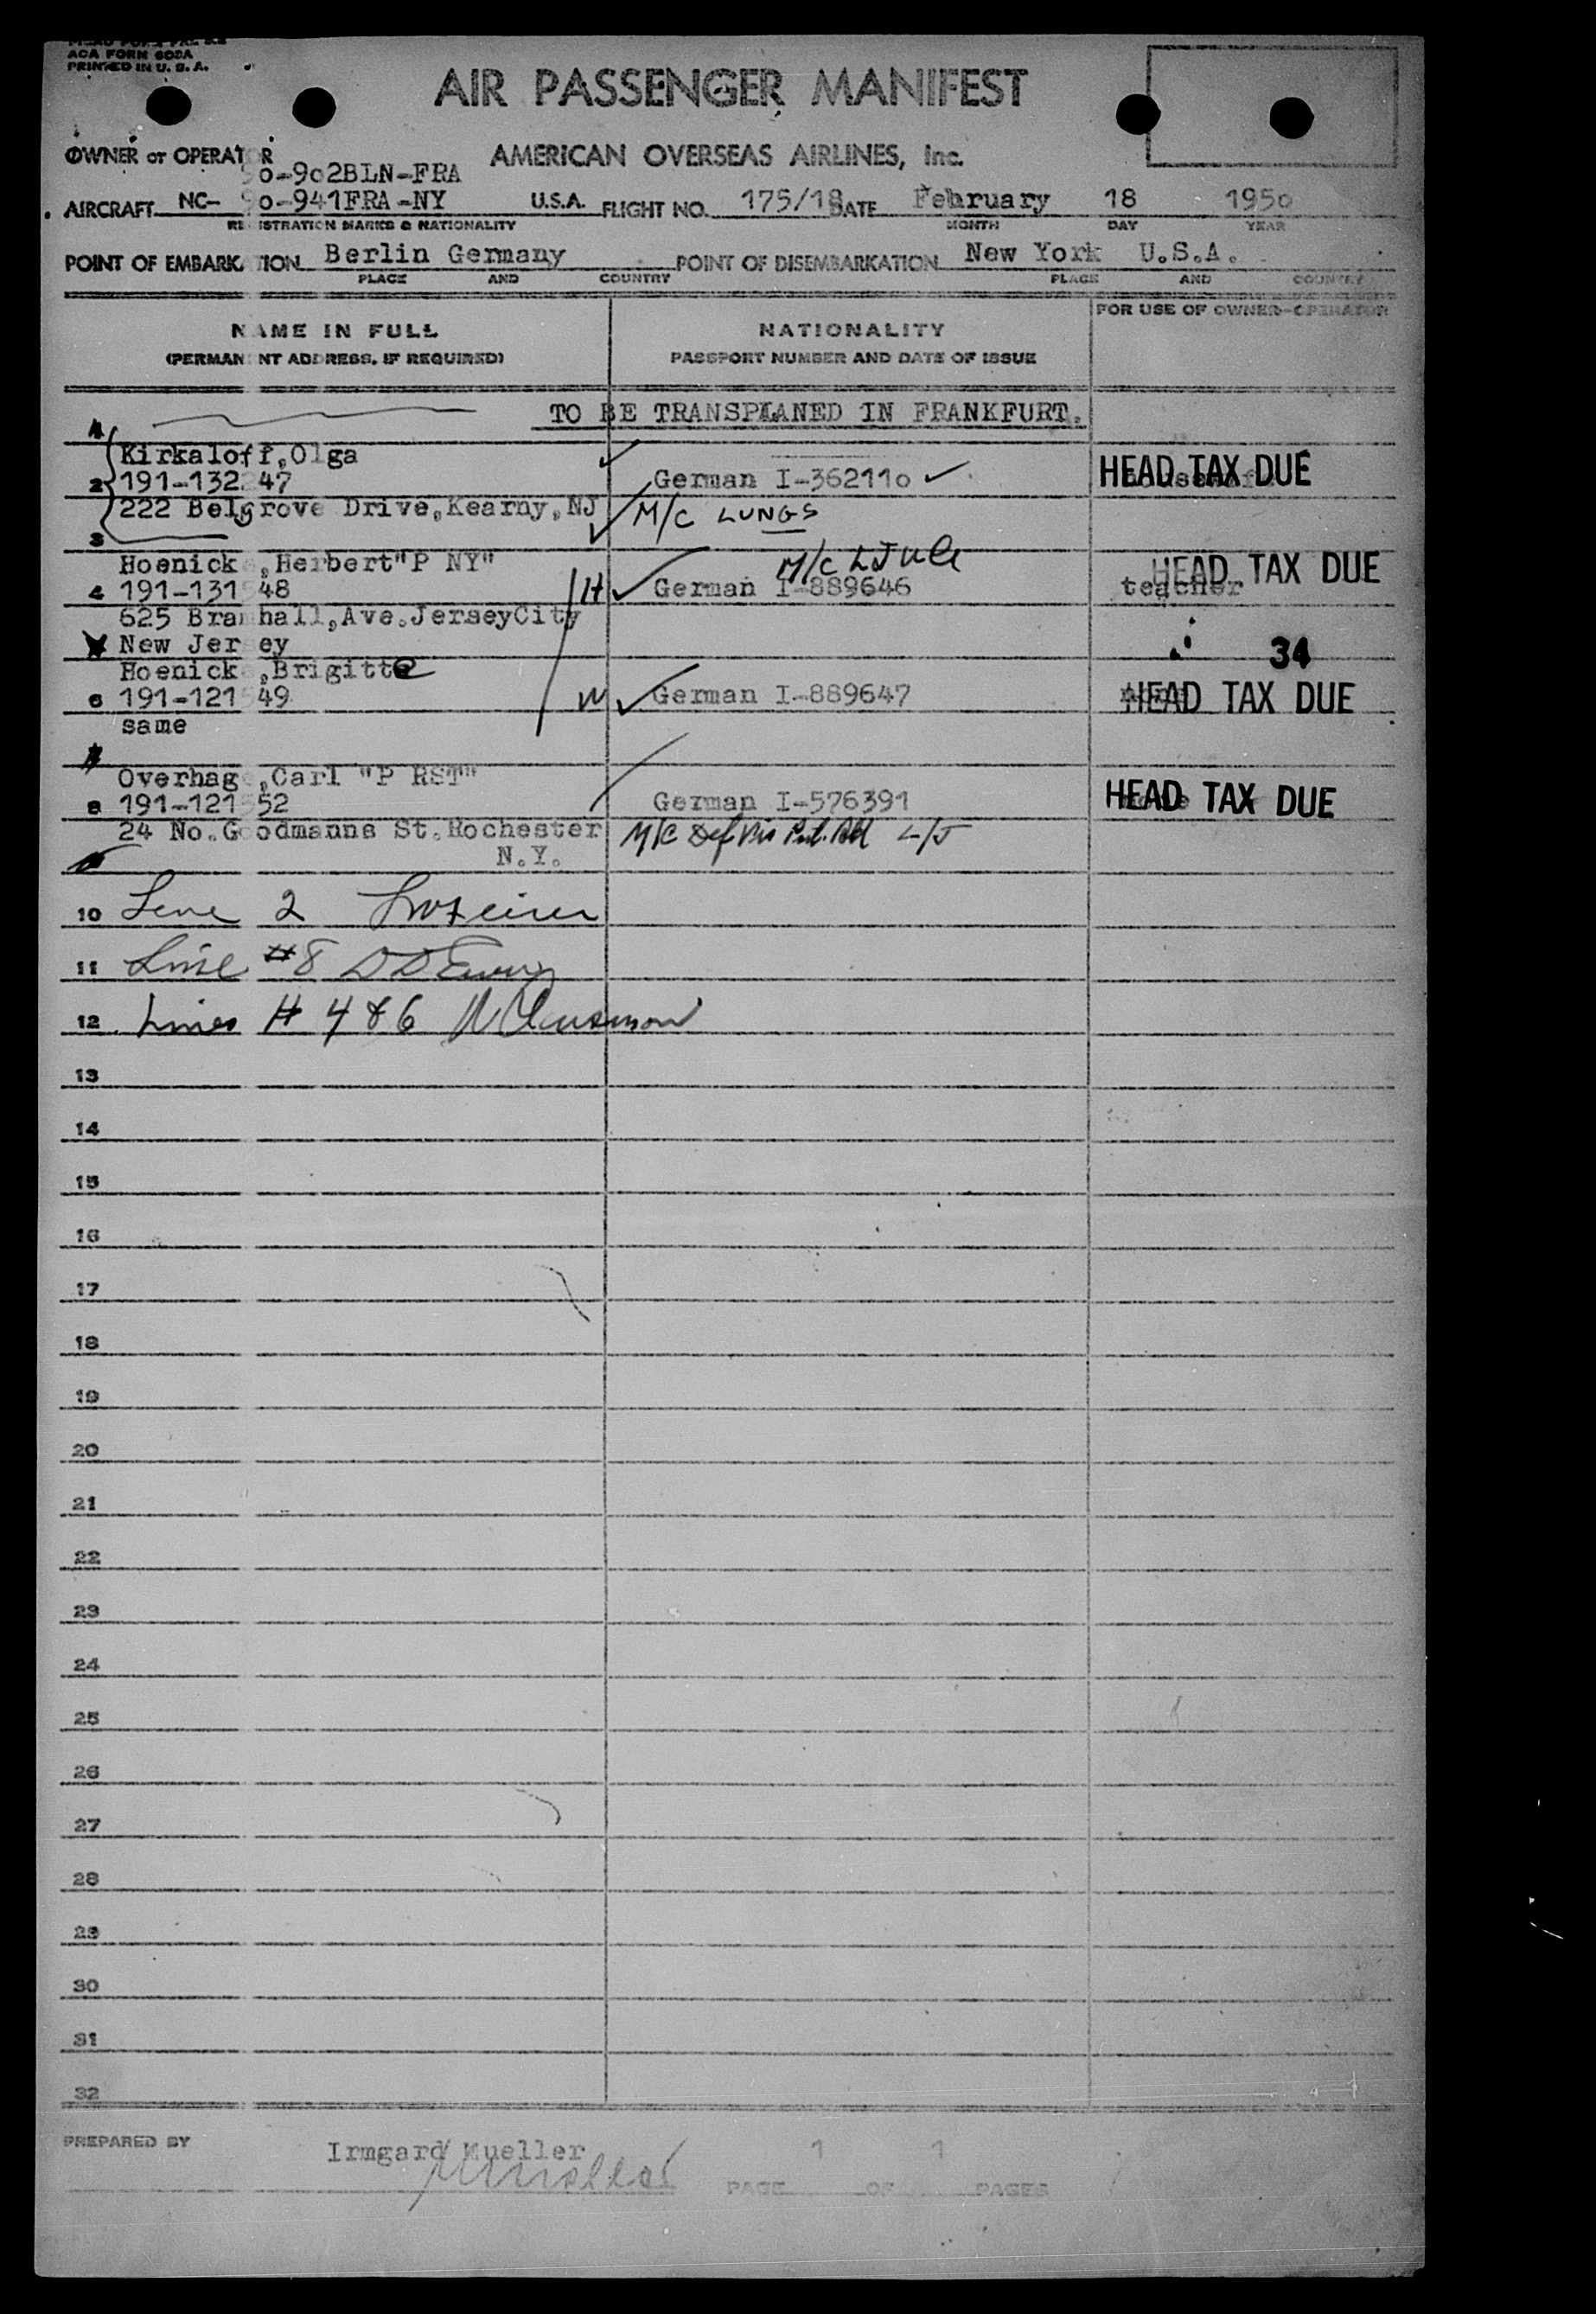 ACA FORM 602A
PRINTED IN U. S. A.
AIR PASSENGER MANIFEST
OWNER or OPERATOR AMERICAN OVERSEAS AIRLINES, Inc.
90-902BLN-FRA
AIRCRAFT NC- 90-941FRA-NY U.S.A. FLIGHT NO. 175/18 DATE February 18 1950
REGISTRATION MARKS & NATIONALITY MONTH DAY YEAR
POINT OF EMBARKATION Berlin Germany POINT OF DISEMBARKATION New York U.S.A.
PLACE AND COUNTRY PLACE AND COUNTRY
FOR USE OF OWNER-OPERATOR
NAME IN FULL NATIONALITY
(PERMANENT ADDRESS, IF REQUIRED) PASSPORT NUMBER AND DATE OF ISSUE
TO BE TRANSPLANED IN FRANKFURT.
Kirkaloff,Olga
2 191-132 47 German I-362110 HEAD TAX DUE
222 Belgrove Drive,Kearny,NJ M/C LUNGS
3
Hoenick ,Herbert"P NY" M/C HEAD TAX DUE
4 191-131 48 H German I-889646 teacher
625 Bramhall,Ave.JerseyCity
New Jersey 34
Hoenick ,Brigitte
6 191-121 49 W German I-889647 HEAD TAX DUE
same
Overhage,Carl "P RST"
8 191-121 52 German I-576391 HEAD TAX DUE
24 No.Goodmanns St.Rochester M/C Def Vis L/J
N.Y.
10 Line 2
11 Line #8
12 Lines # 4 & 6
13
14
15
16
17
18
19
20
21
22
23
24
25
26
27
28
29
30
31
32
PREPARED BY Irmgard Mueller
PAGE 1 OF 1 PAGES